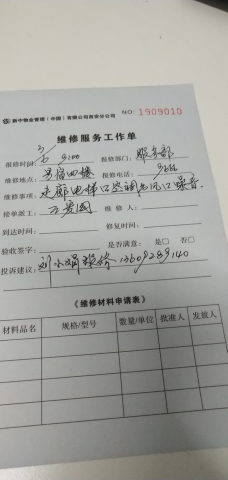 新中物业管理（中国）有限公司西安分公司
NO: 1909010
维修服务工作单
报修时间: 9:00 报修部门: 服务部
维修地点: 号楼四楼 报修电话: 9666
维修事项: 走廊电梯口空调出风口噪音.
接单派工: 维修人:
到达时间: 修复时间:
验收签字: 是否满意: 是□ 否□
投诉建议: 13609289140
《维修材料申请表》
材料品名 规格/型号 数量/单位 批准人 发放人